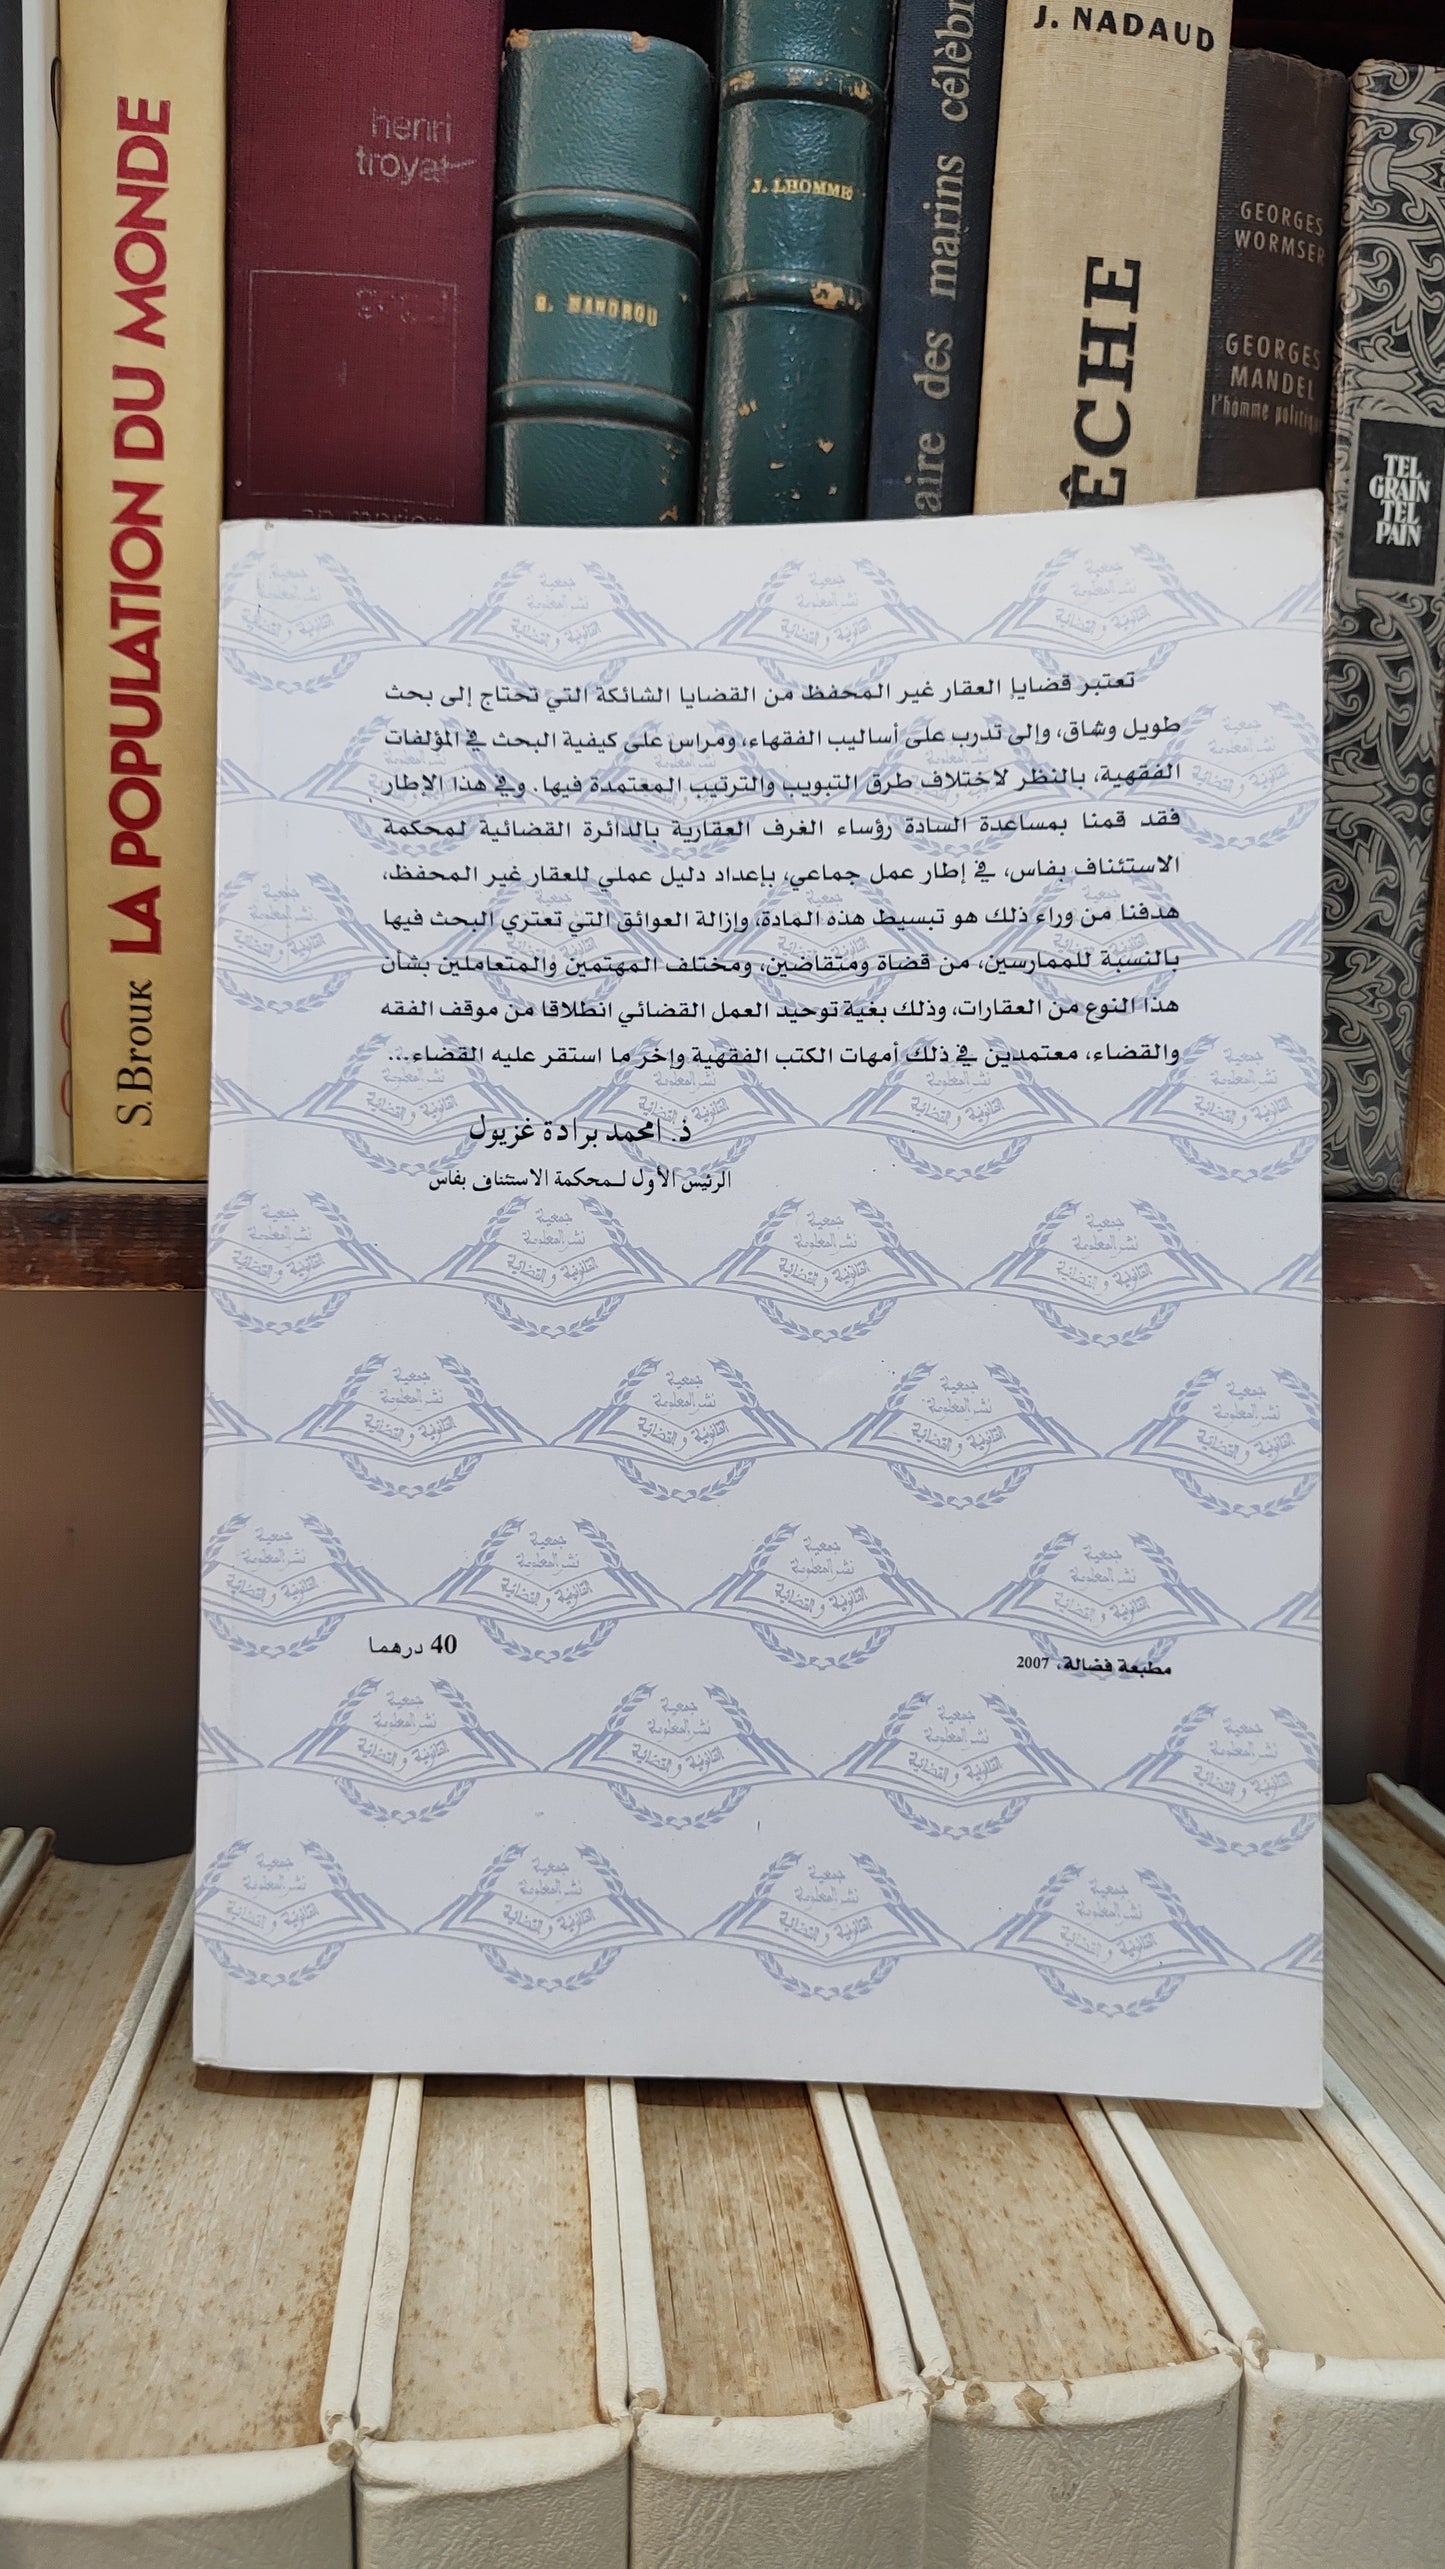 LA POPULATION DU MONDE
S. Brouk
henri
troyat
J. LHOMME
marins célèbr
aire des
J. NADAUD
ÊCHE
GEORGES
WORMSER
GEORGES
MANDEL
l'homme politiqu
TEL
GRAIN
TEL
PAIN
تعتبر قضايا العقار غير المحفظ من القضايا الشائكة التي تحتاج إلى بحث
طويل وشاق، وإلى تدرب على أساليب الفقهاء، ومراس على كيفية البحث في المؤلفات
الفقهية، بالنظر لاختلاف طرق التبويب والترتيب المعتمدة فيها. وفي هذا الإطار
فقد قمنا بمساعدة السادة رؤساء الغرف العقارية بالدائرة القضائية لمحكمة
الاستئناف بفاس، في إطار عمل جماعي، بإعداد دليل عملي للعقار غير المحفظ،
هدفنا من وراء ذلك هو تبسيط هذه المادة، وإزالة العوائق التي تعتري البحث فيها
بالنسبة للممارسين، من قضاة ومتقاضين، ومختلف المهتمين والمتعاملين بشأن
هذا النوع من العقارات، وذلك بغية توحيد العمل القضائي انطلاقا من موقف الفقه
والقضاء، معتمدين في ذلك أمهات الكتب الفقهية وإخر ما استقر عليه القضاء...
ذ. امحمد برادة غزيول
الرئيس الأول لـمحكمة الاستئناف بفاس
جمعية
نشر المعلومة
القانونية و القضائية
مطبعة فضالة، 2007
40 درهما